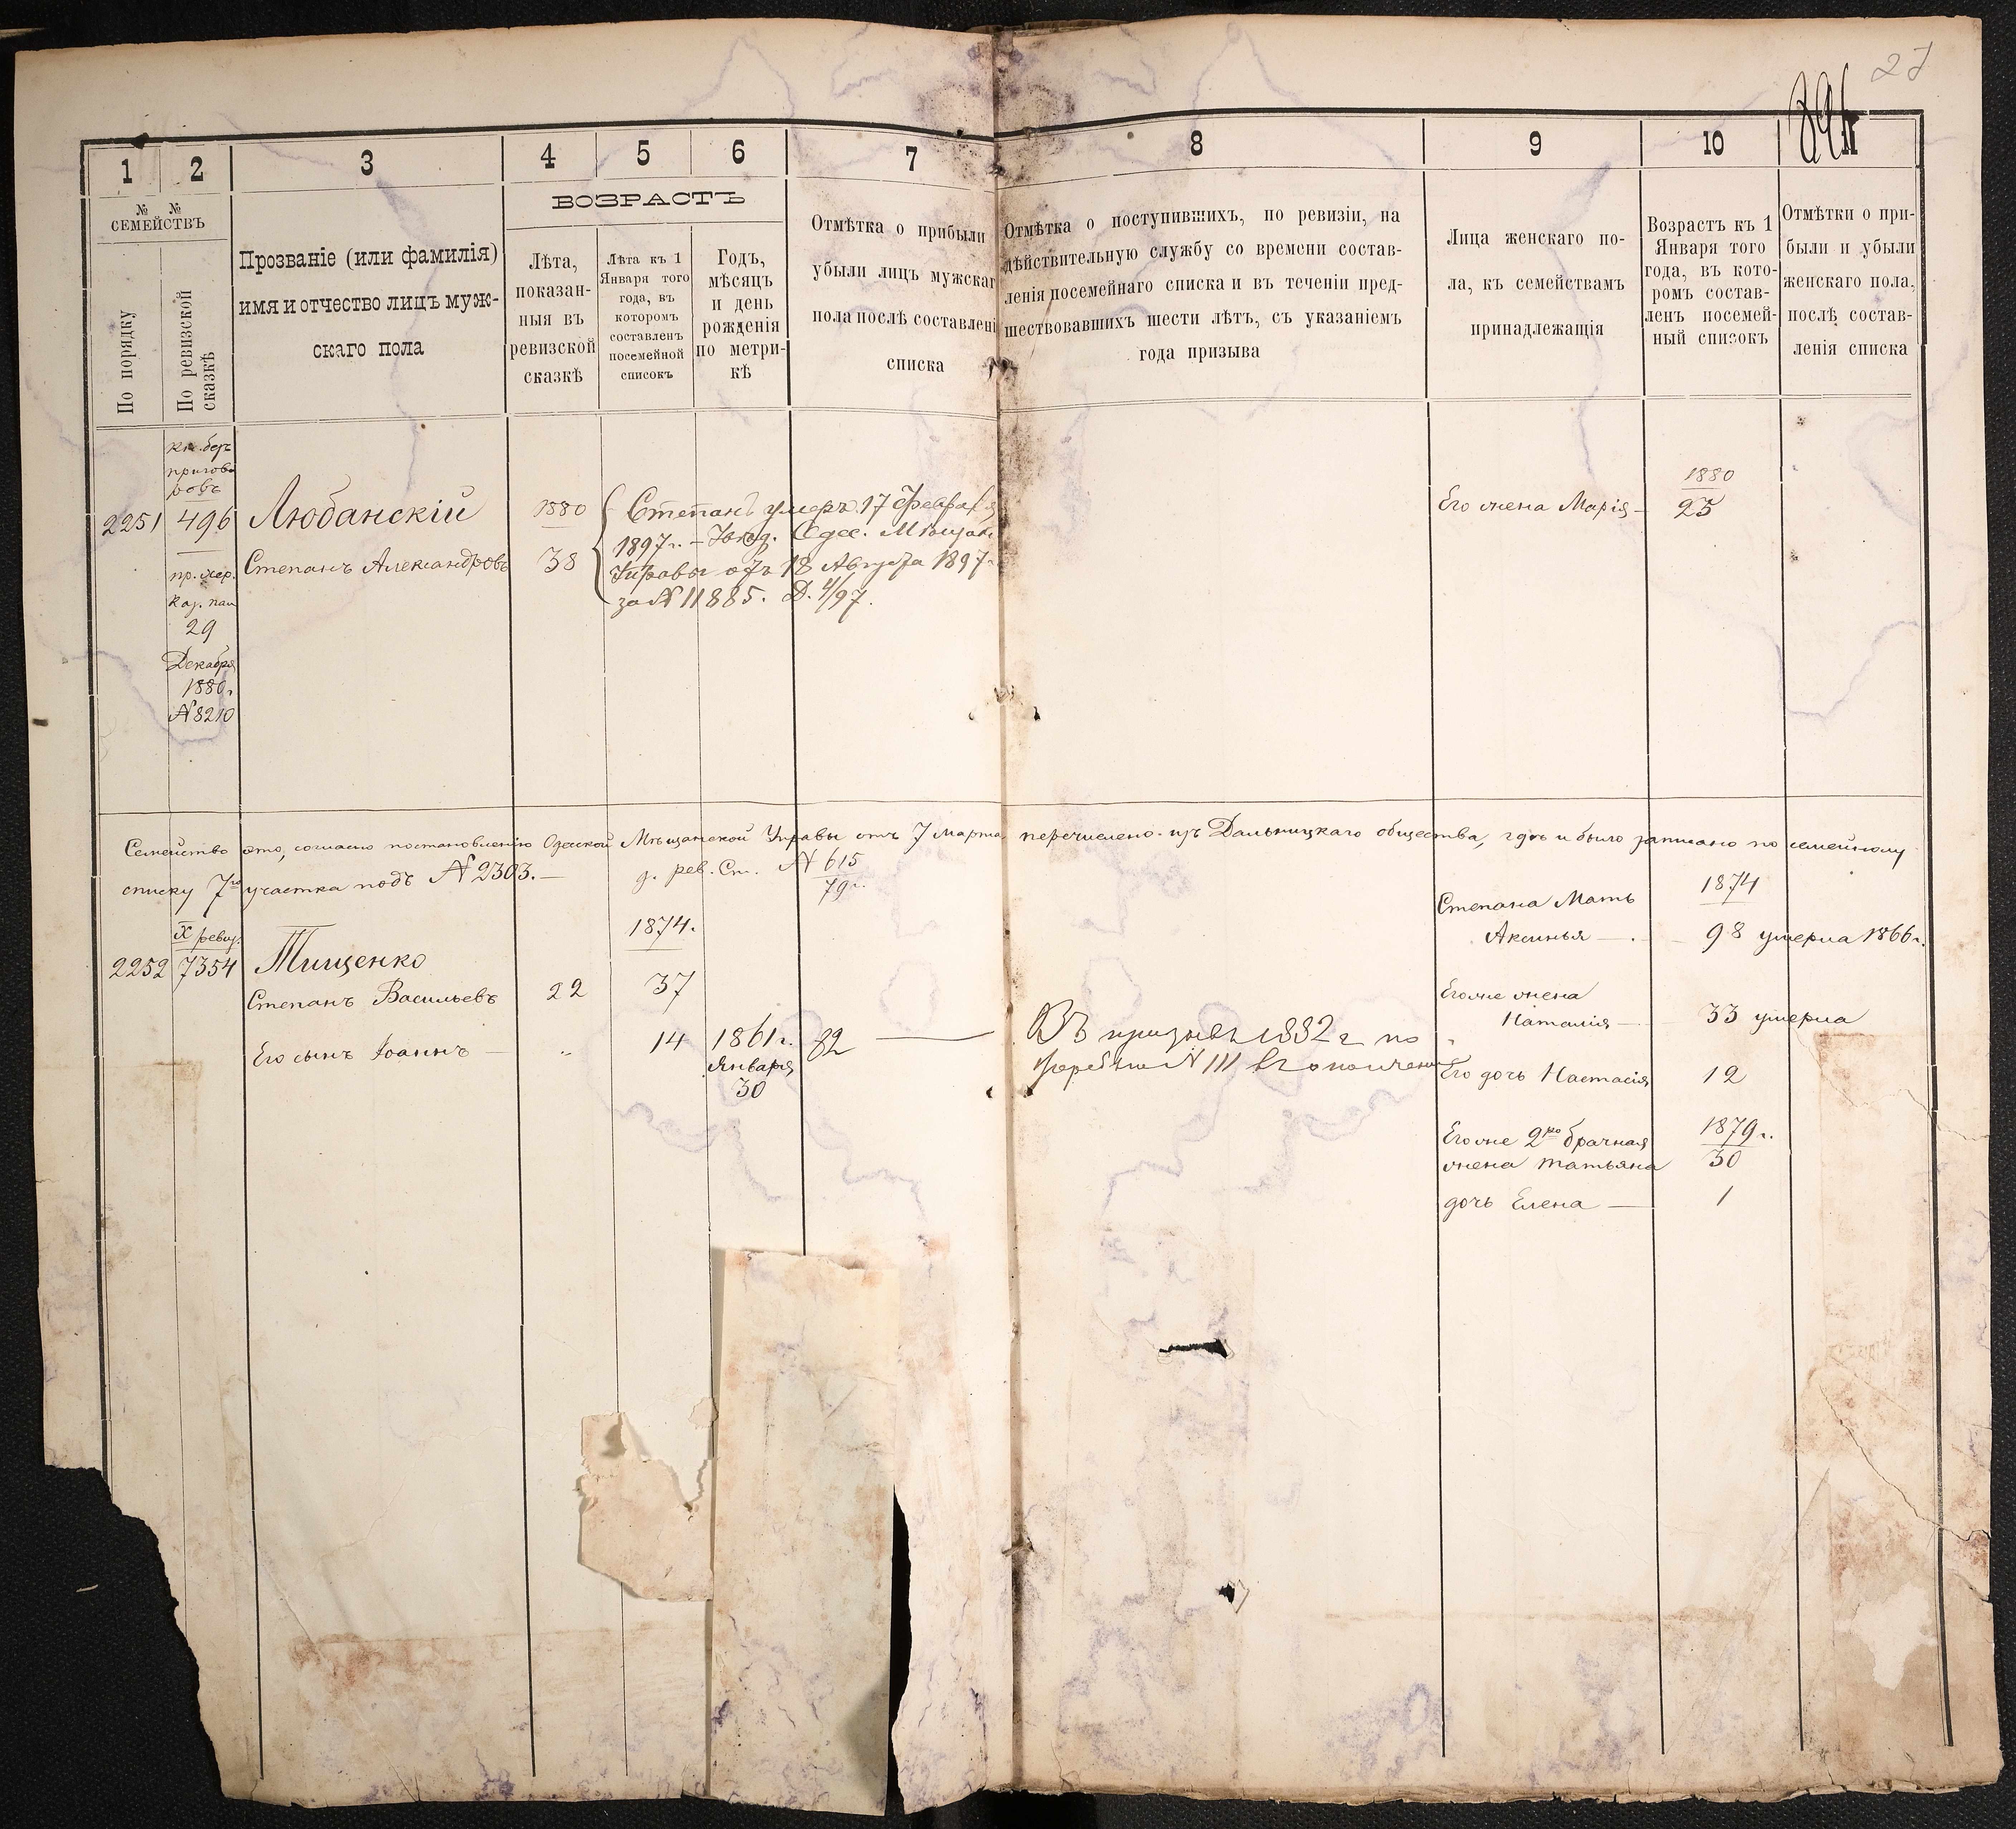 27
1
2
3
4
5
6
7
8
9
10
№ № СЕМЕЙСТВЪ
По порядку
По ревизской сказкѣ
Прозваніе (или фамилія)
имя и отчество лицъ муж-
скаго пола
ВОЗРАСТЪ
Лѣта,
показан-
ныя въ
ревизской
сказкѣ
Лѣта къ 1
Января того
года, въ
которомъ
составленъ
посемейной
списокъ
Годъ,
мѣсяцъ
и день
рожденія
по метри-
кѣ
Отмѣтка о прибыли
убыли лицъ мужскаг
пола послѣ составлені
списка
Отмѣтка о поступившихъ, по ревизіи, на
дѣйствительную службу со времени состав-
ленія посемейнаго списка и въ теченіи пред-
шествовавшихъ шести лѣтъ, съ указаніемъ
года призыва
Лица женскаго по-
ла, къ семействамъ
принадлежащія
Возрастъ къ 1
Января того
года, въ кото-
ромъ состав-
ленъ посемей-
ный списокъ
Отмѣтки о при-
были и убыли
женскаго пола,
послѣ состав-
ленія списка
пригово
ровъ
2251
496
29
Декабря
1880г
№8210
Любанскій
Степанъ Александровъ
1880
38
Степанъ умеръ 17 Февраля
1897г. – Одес. Мѣщан.
Управы отъ 18 Августа 1897г
за № 11885. Д. 4/97.
Его жена Марія –
1880
25
Семейство это, согласно постановленію Одесской Мѣщанской Управы отъ 7 Марта перечислено изъ Дальницкаго общества, гдѣ и было записано по семейному
списку 7го участка подъ № 2303. – д. рев. Ст. № 615
79г.
X ревиз.
2252
7354
Тищенко
Степанъ Васильевъ
22
1874.
37
Его сынъ Іоаннъ –
14
1861г.
Января
30
82
Въ призывъ 1882 г по
жеребью № 111 въ ополчение
Степана Мать
Аксинья –
1874
98 умерла 1866г.
Его же жена
Наталія –
33 умерла
Его дочь Настасія
12
Его же 2ко брачная
жена татьяна
1879г.
30
дочь Елена –
1